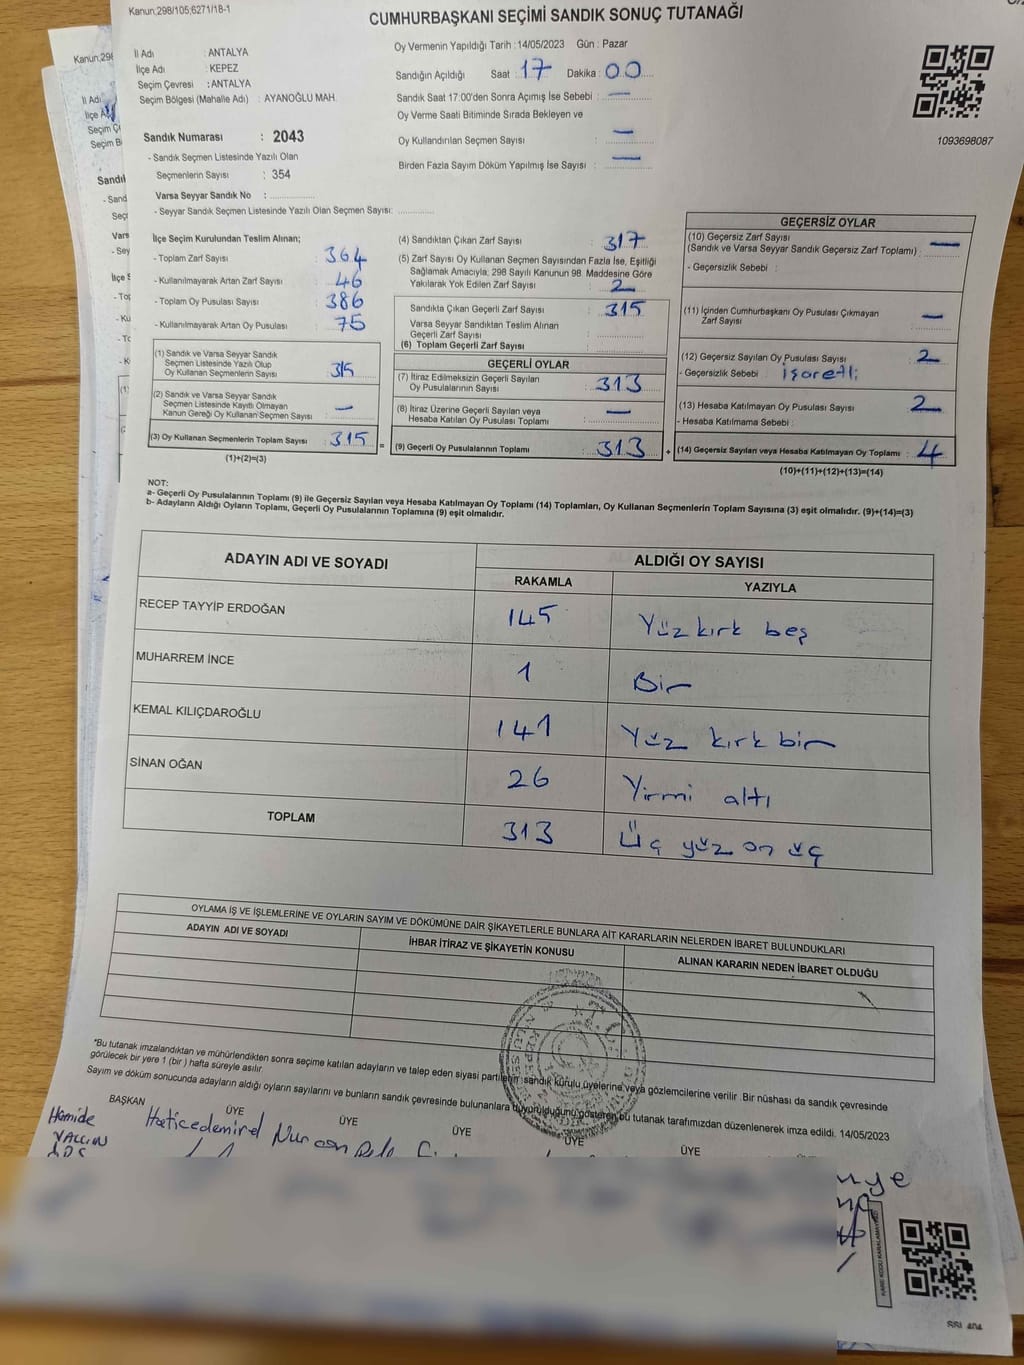 Kanun;298/105;6271/18-1
CUMHURBAŞKANI SEÇİMİ SANDIK SONUÇ TUTANAĞI
İl Adı : ANTALYA
İlçe Adı : KEPEZ
Seçim Çevresi : ANTALYA
Seçim Bölgesi (Mahalle Adı) : AYANOĞLU MAH.
Sandık Numarası : 2043
- Sandık Seçmen Listesinde Yazılı Olan
Seçmenlerin Sayısı : 354
Varsa Seyyar Sandık No : ..............
- Seyyar Sandık Seçmen Listesinde Yazılı Olan Seçmen Sayısı: ..............
Oy Vermenin Yapıldığı Tarih : 14/05/2023 Gün : Pazar
Sandığın Açıldığı Saat : 17 Dakika : 00
Sandık Saat 17:00'den Sonra Açımış İse Sebebi : —
Oy Verme Saati Bitiminde Sırada Bekleyen ve
Oy Kullandırılan Seçmen Sayısı : —
Birden Fazla Sayım Döküm Yapılmış İse Sayısı : —
1093698087
İlçe Seçim Kurulundan Teslim Alınan;
- Toplam Zarf Sayısı : 364
- Kullanılmayarak Artan Zarf Sayısı : 46
- Toplam Oy Pusulası Sayısı : 386
- Kullanılmayarak Artan Oy Pusulası : 75
(1) Sandık ve Varsa Seyyar Sandık
Seçmen Listesinde Yazılı Olup
Oy Kullanan Seçmenlerin Sayısı : 315
(2) Sandık ve Varsa Seyyar Sandık
Seçmen Listesinde Kayıtlı Olmayan
Kanun Gereği Oy Kullanan Seçmen Sayısı : —
(3) Oy Kullanan Seçmenlerin Toplam Sayısı : 315 =
(1)+(2)=(3)
(4) Sandıktan Çıkan Zarf Sayısı : 317
(5) Zarf Sayısı Oy Kullanan Seçmen Sayısından Fazla İse, Eşitliği
Sağlamak Amacıyla; 298 Sayılı Kanunun 98. Maddesine Göre
Yakılarak Yok Edilen Zarf Sayısı : 2
Sandıkta Çıkan Geçerli Zarf Sayısı : 315
Varsa Seyyar Sandıktan Teslim Alınan
Geçerli Zarf Sayısı :
(6) Toplam Geçerli Zarf Sayısı :
GEÇERLİ OYLAR
(7) İtiraz Edilmeksizin Geçerli Sayılan
Oy Pusulalarının Sayısı : 313
(8) İtiraz Üzerine Geçerli Sayılan veya
Hesaba Katılan Oy Pusulası Toplamı : —
(9) Geçerli Oy Pusulalarının Toplamı : 313 +
GEÇERSİZ OYLAR
(10) Geçersiz Zarf Sayısı
(Sandık ve Varsa Seyyar Sandık Geçersiz Zarf Toplamı) : —
- Geçersizlik Sebebi :
(11) İçinden Cumhurbaşkanı Oy Pusulası Çıkmayan
Zarf Sayısı : —
(12) Geçersiz Sayılan Oy Pusulası Sayısı : 2
- Geçersizlik Sebebi : işaretli
(13) Hesaba Katılmayan Oy Pusulası Sayısı : 2
- Hesaba Katılmama Sebebi :
(14) Geçersiz Sayılan veya Hesaba Katılmayan Oy Toplamı : 4
(10)+(11)+(12)+(13)=(14)
NOT:
a- Geçerli Oy Pusulalarının Toplamı (9) ile Geçersiz Sayılan veya Hesaba Katılmayan Oy Toplamı (14) Toplamları, Oy Kullanan Seçmenlerin Toplam Sayısına (3) eşit olmalıdır. (9)+(14)=(3)
b- Adayların Aldığı Oyların Toplamı, Geçerli Oy Pusulalarının Toplamına (9) eşit olmalıdır.
ADAYIN ADI VE SOYADI
ALDIĞI OY SAYISI
RAKAMLA YAZIYLA
RECEP TAYYİP ERDOĞAN 145 Yüz kırk beş
MUHARREM İNCE 1 Bir
KEMAL KILIÇDAROĞLU 141 Yüz kırk bir
SİNAN OĞAN 26 Yirmi altı
TOPLAM 313 Üç yüz on üç
OYLAMA İŞ VE İŞLEMLERİNE VE OYLARIN SAYIM VE DÖKÜMÜNE DAİR ŞİKAYETLERLE BUNLARA AİT KARARLARIN NELERDEN İBARET BULUNDUKLARI
ADAYIN ADI VE SOYADI İHBAR İTİRAZ VE ŞİKAYETİN KONUSU ALINAN KARARIN NEDEN İBARET OLDUĞU
*Bu tutanak imzalandıktan ve mühürlendikten sonra seçime katılan adayların ve talep eden siyasi partilerin sandık kurulu üyelerine veya gözlemcilerine verilir. Bir nüshası da sandık çevresinde
görülecek bir yere 1 (bir) hafta süreyle asılır.
Sayım ve döküm sonucunda adayların aldığı oyların sayılarını ve bunların sandık çevresinde bulunanlara duyurulduğunu gösteren bu tutanak tarafımızdan düzenlenerek imza edildi. 14/05/2023
BAŞKAN ÜYE ÜYE ÜYE ÜYE ÜYE
Hamide Haticedemirel Nurcan